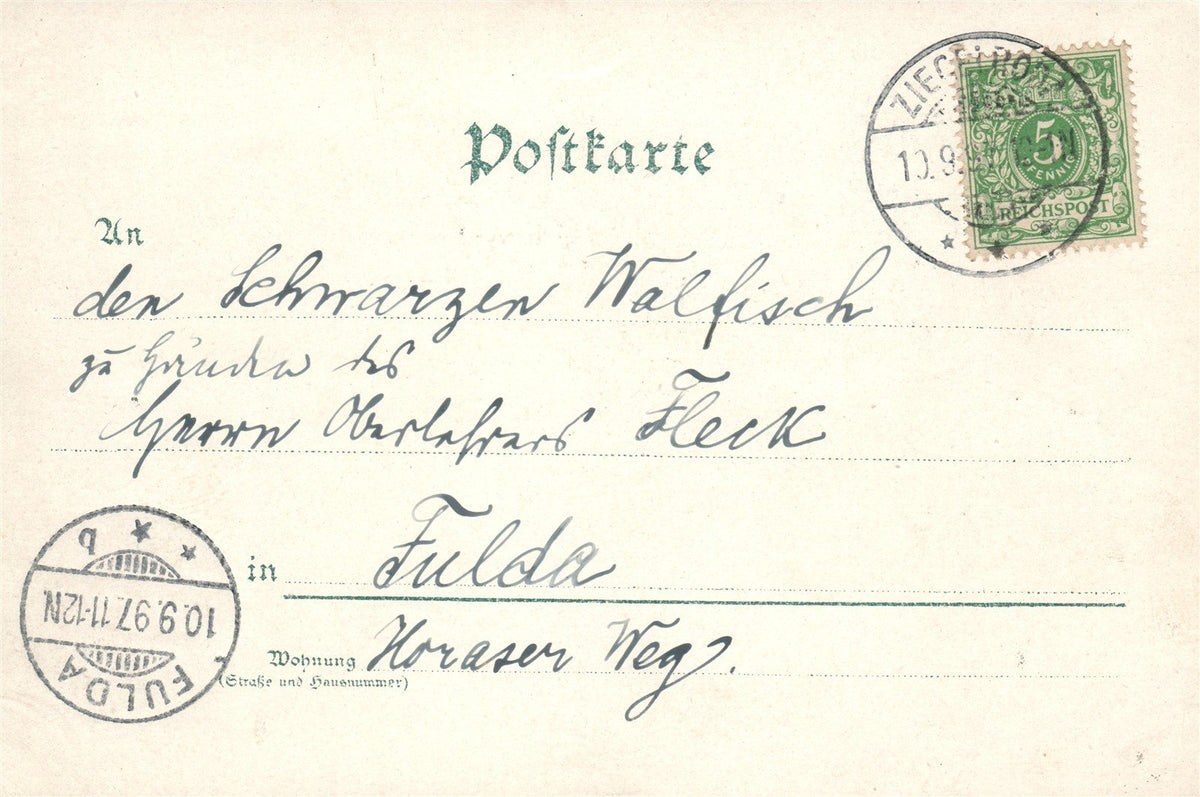 Postkarte
5
PFENNIG
REICHSPOST
10.9.
An
den Schwarzen Walfisch
zu Händen des
Herrn Oberlehrers Fleck
in Fulda
Wohnung Horaser Weg.
(Straße und Hausnummer)
FULDA
10.9.97.11-12N
b